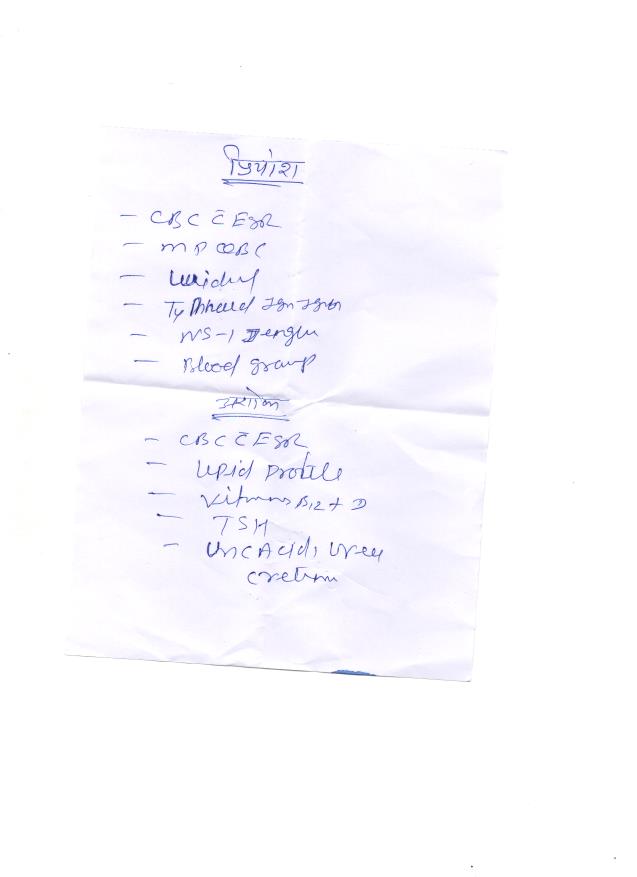 प्रियांश
- CBC c̄ ESR
- MP QBC
- Widal
- Typhoid IgG IgM
- NS-1 Dengu
- Blood group
- CBC c̄ ESR
- Lipid Profile
- Vitmns B12 + D
- TSH
- Uric Acid, Urea